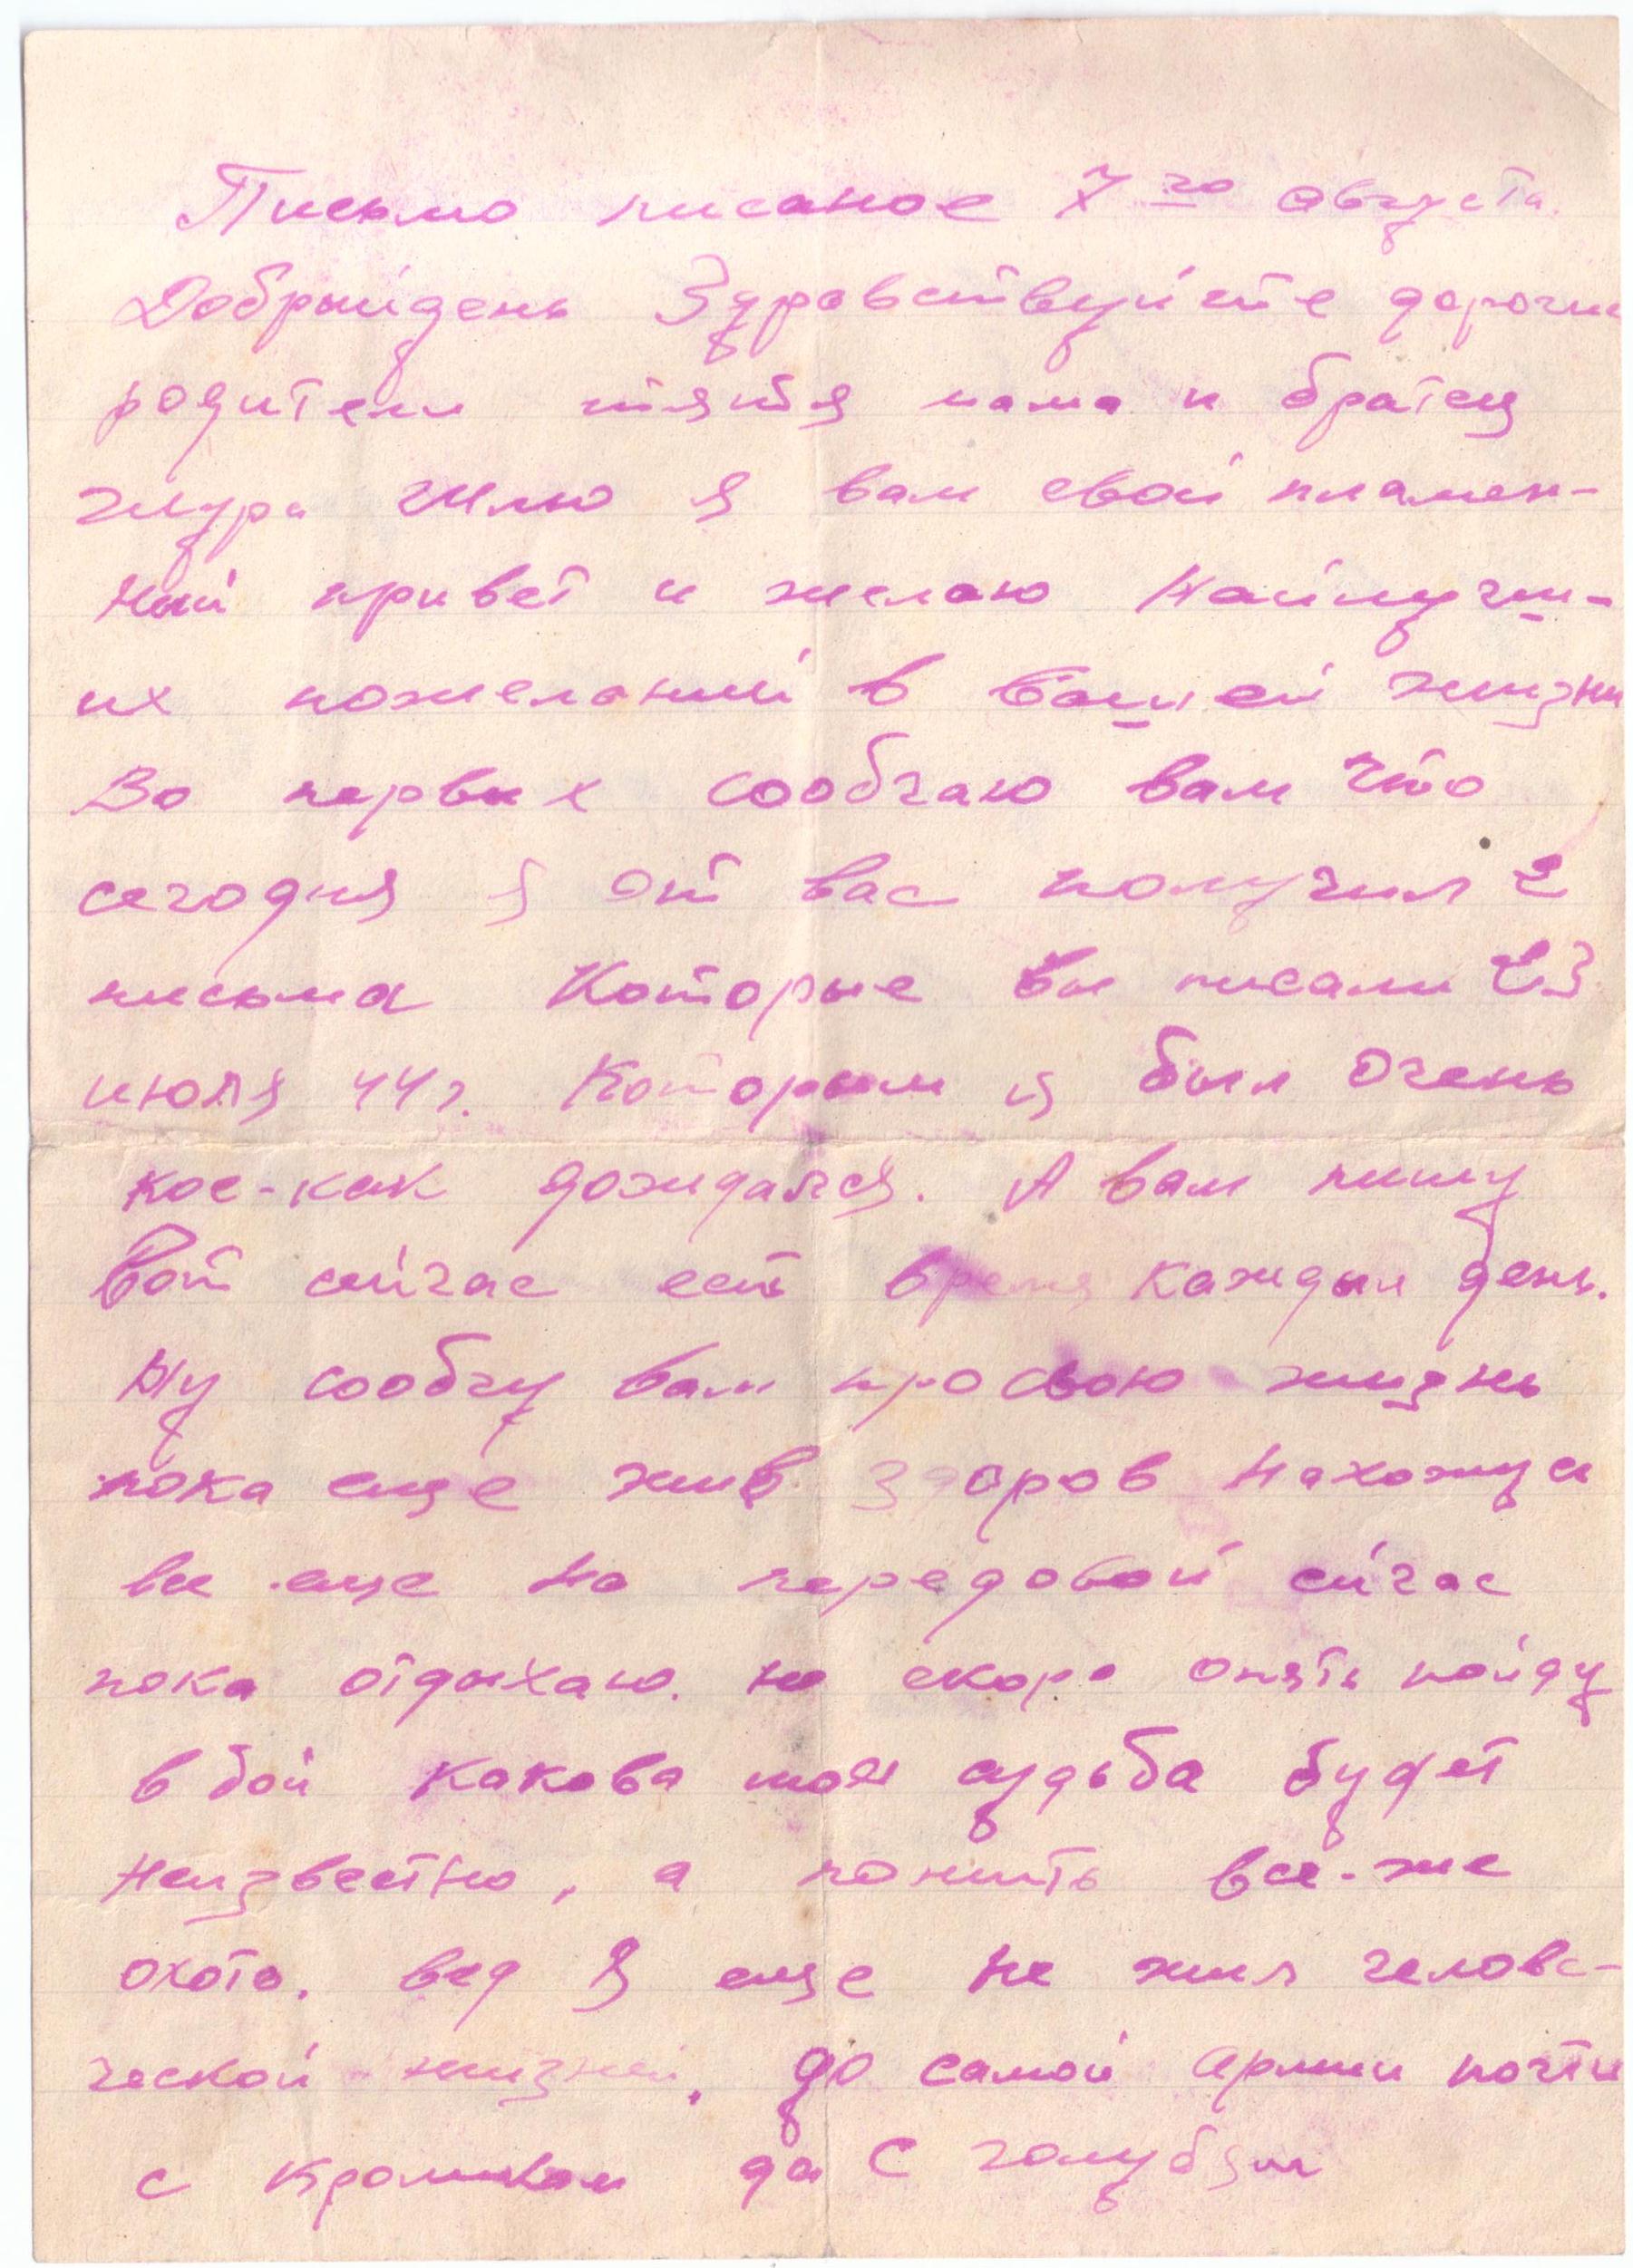 Письмо писаное 7го августа.
Добрыйдень Здравствуйте дорогие
родители тятя мама и братец
Шура Шлю я вам свой пламен-
ный привет и желаю Найлучш-
их пожеланий в вашей жизни
Во первых сообчаю вам что
сегодня я от вас получил 2
письма Которые вы писали 23
июля 44г. Которым я был очень
кое-как дождался. А вам пишу
Вот сийчас ест время каждый день.
Ну сообчу вам просвою жизнь
пока еще жив здоров Нахожус
все еще на передовой сийчас
пока отдыхаю. но скоро опять пойду
в бой какова моя судьба будет
Неизвестно, а пожить все-же
охота. вед я еще не жил челове-
ческой жизней. до самой армии почти
с кроликам да с голубям